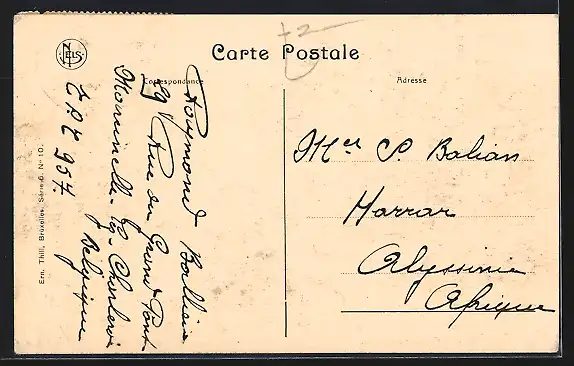 NELS
Carte Postale
Correspondance
Adresse
+2
Raymond
29 Rue du Grand Pont
Marcinelle - lez - Charleroi
Belgique
T.P.T. 957.
Mer P. Balian
Harrar
Abyssinie
Afrique
Ern. Thill, Bruxelles, Série 6. No 10.